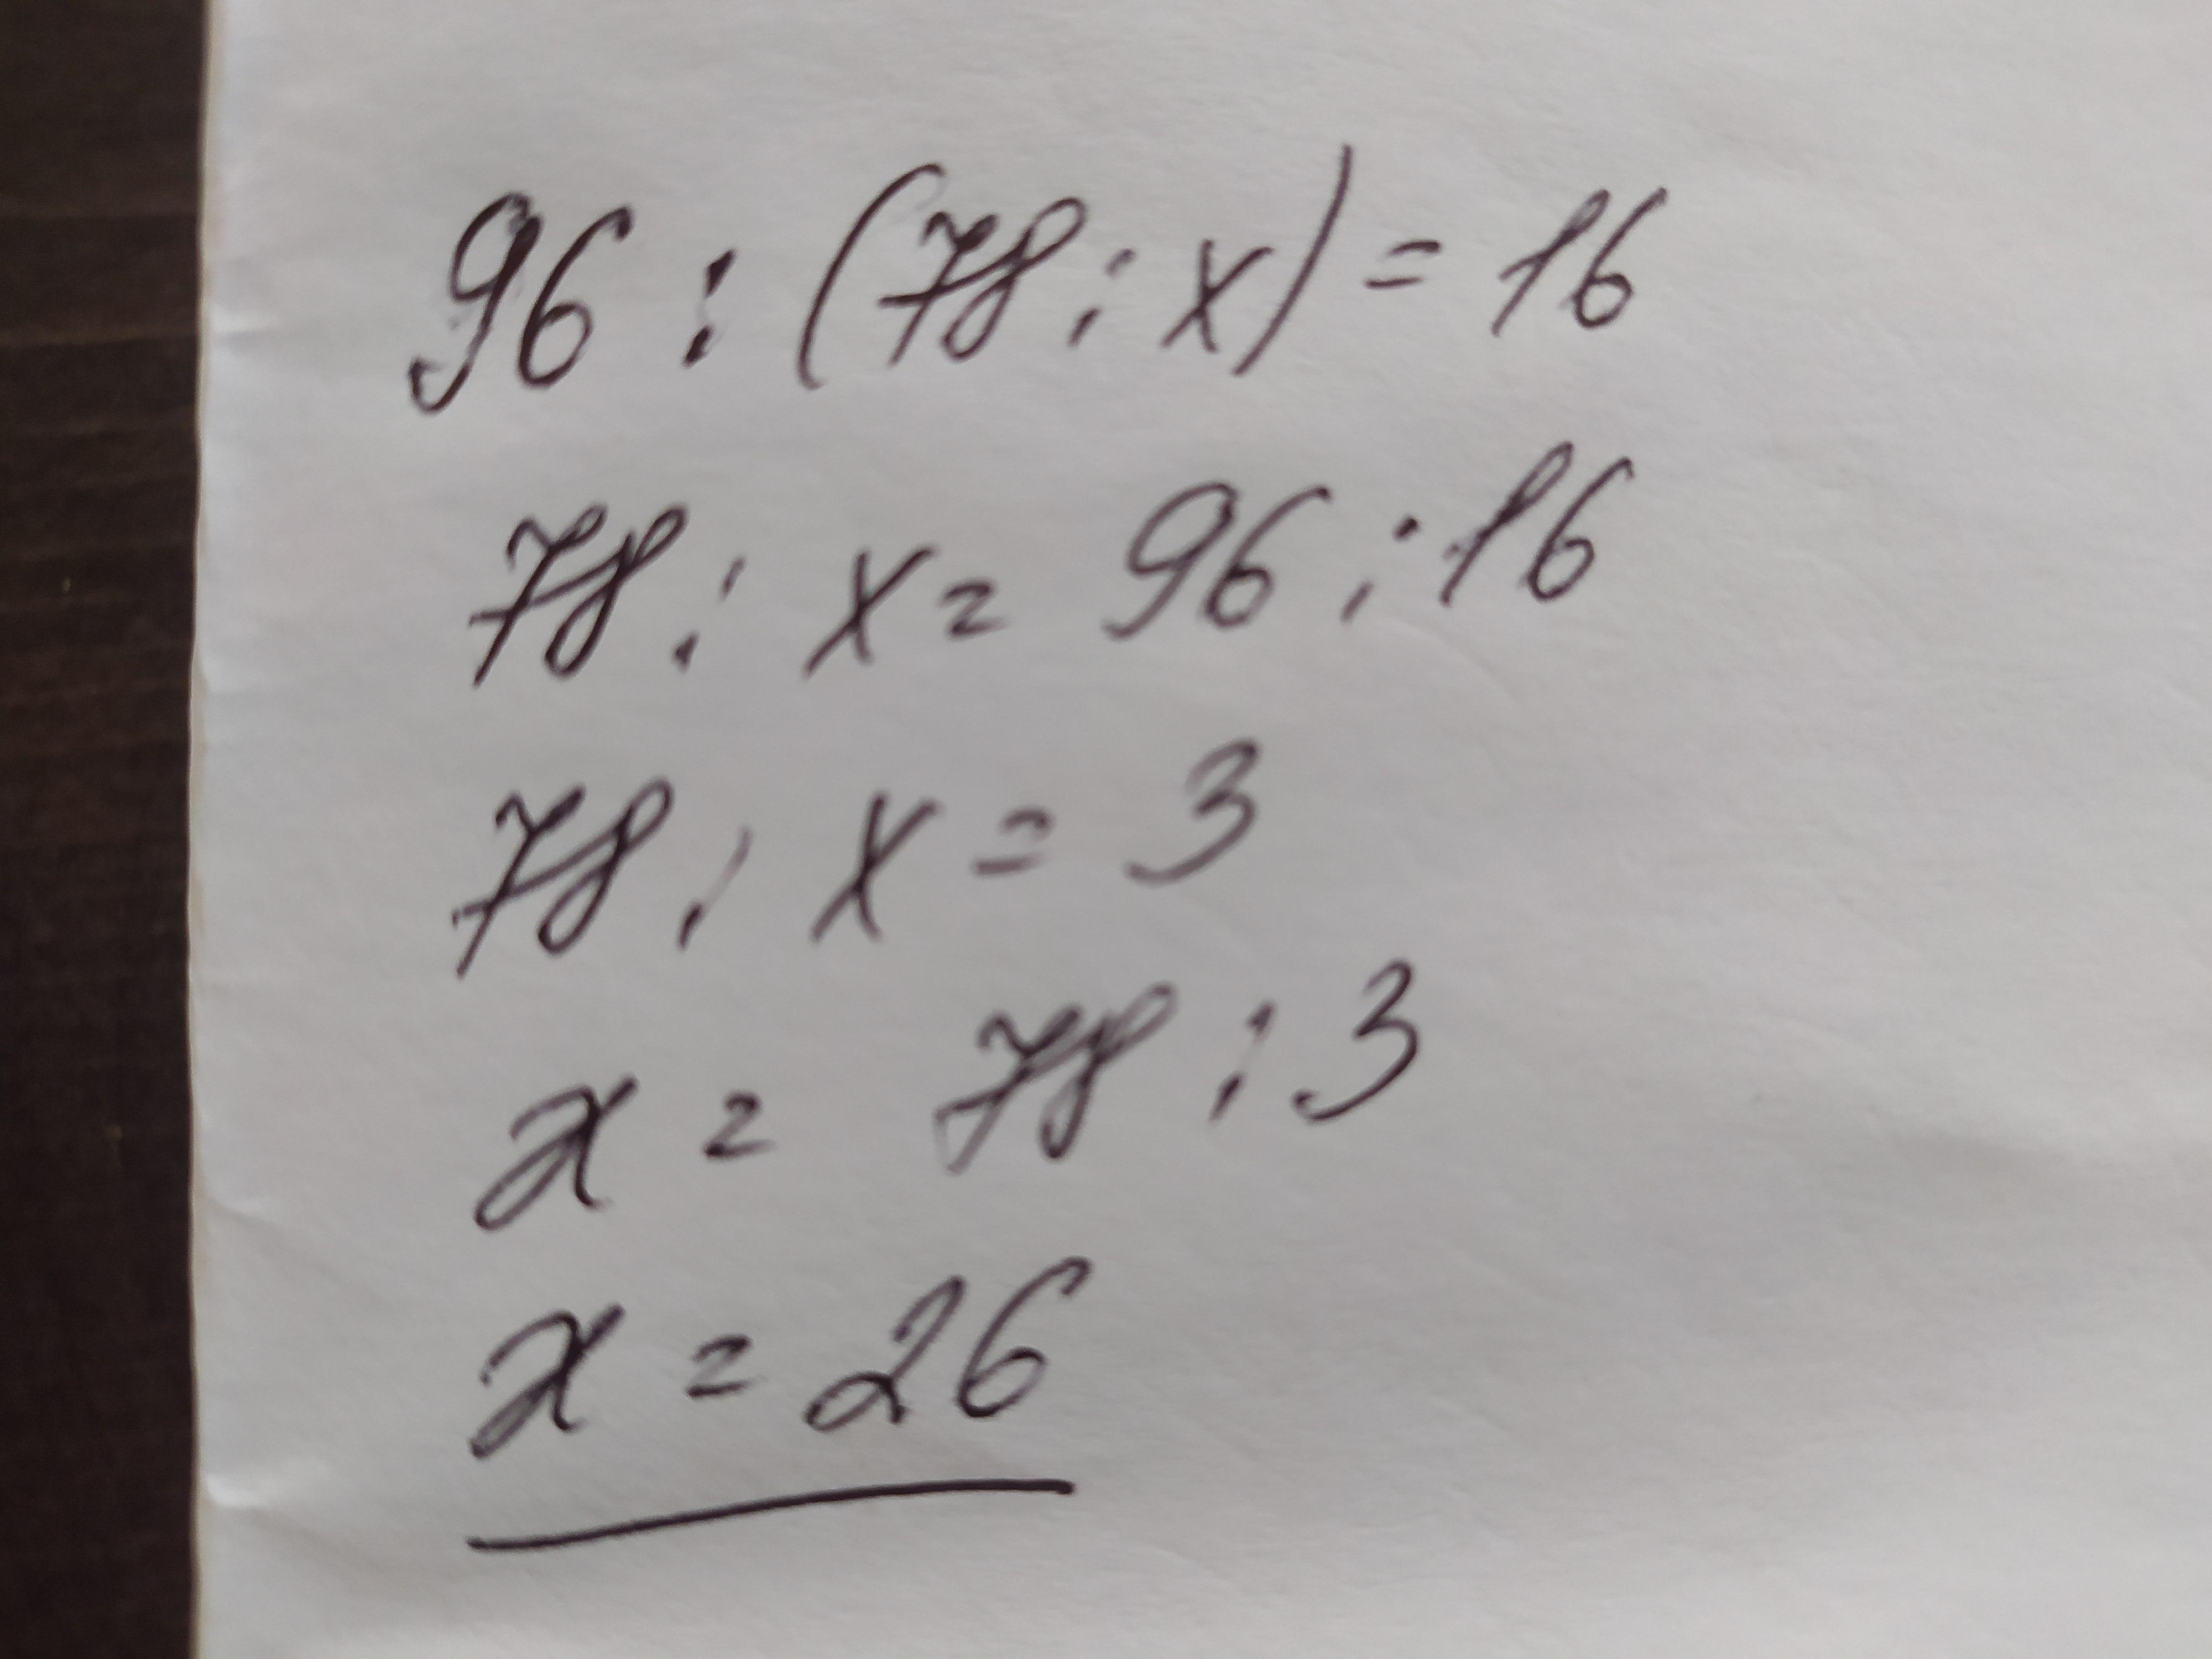 96 : (78 : x) = 16
78 : x = 96 : 16
78 : x = 3
x = 78 : 3
x = 26